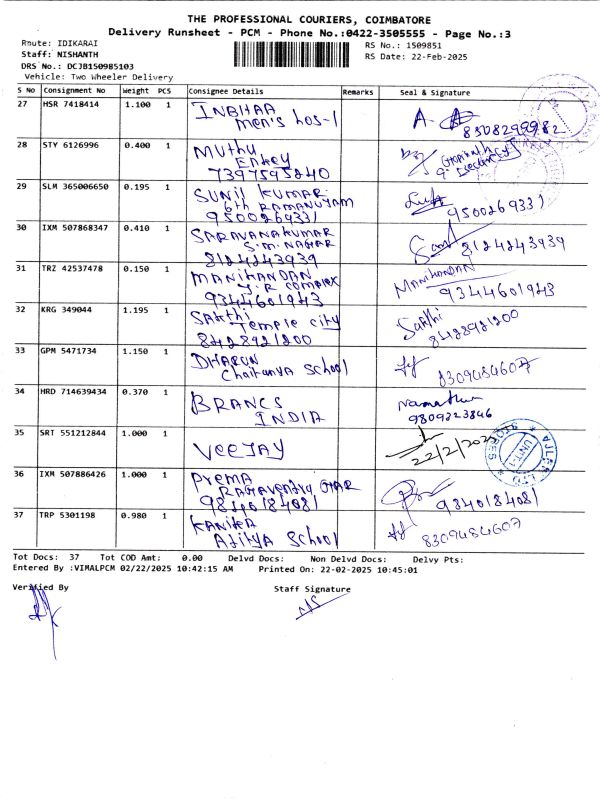 THE PROFESSIONAL COURIERS, COIMBATORE
Delivery Runsheet - PCM - Phone No.:0422-3505555 - Page No.:3
Route: IDIKARAI
RS No.: 1509851
Staff: NISHANTH
RS Date: 22-Feb-2025
DRS No.: DCJB150985103
Vehicle: Two Wheeler Delivery
S No Consignment No Weight PCS Consignee Details Remarks Seal & Signature
27 HSR 7418414 1.100 1 INBHAA
men's hos-1
8508299982
28 STY 6126996 0.400 1 Muthu
7397595840
29 SLM 365006650 0.195 1 SUNIL KUMAR
6th RAMANUYAM
9500269331 9500269331
30 IXM 507868347 0.410 1 SARAVANAKUMAR
S.M. NAGAR
8124243939 8124243939
31 TRZ 42537478 0.150 1 MANIKANDAN MANIKANDAN
J.R complex
9344601943 9344601943
32 KRG 349044 1.195 1 SAKthi Sakthi
Temple city
8428921200 8428921200
33 GPM 5471734 1.150 1 DHARUN
Chaitanya School 8309484607
34 HRD 714639434 0.370 1 BRANCS
INDIA 9809223846
35 SRT 551212844 1.000 1 VEEJAY
22/2/2025
UNIT-1
STORES
36 IXM 507886426 1.000 1 Prema
9840184081 9840184081
37 TRP 5301198 0.980 1 KANIKA
Aditya School 8309484607
Tot Docs: 37 Tot COD Amt: 0.00 Delvd Docs: Non Delvd Docs: Delvy Pts:
Entered By :VIMALPCM 02/22/2025 10:42:15 AM Printed On: 22-02-2025 10:45:01
Verified By Staff Signature